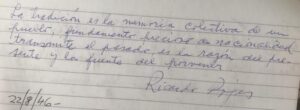 La tradición es la memoria colectiva de un
pueblo, fundamento precioso de nacionalidad
transmite el pasado, es la razón del pre-
sente y la fuente del porvenir
Ricardo Rojas
22/8/46-